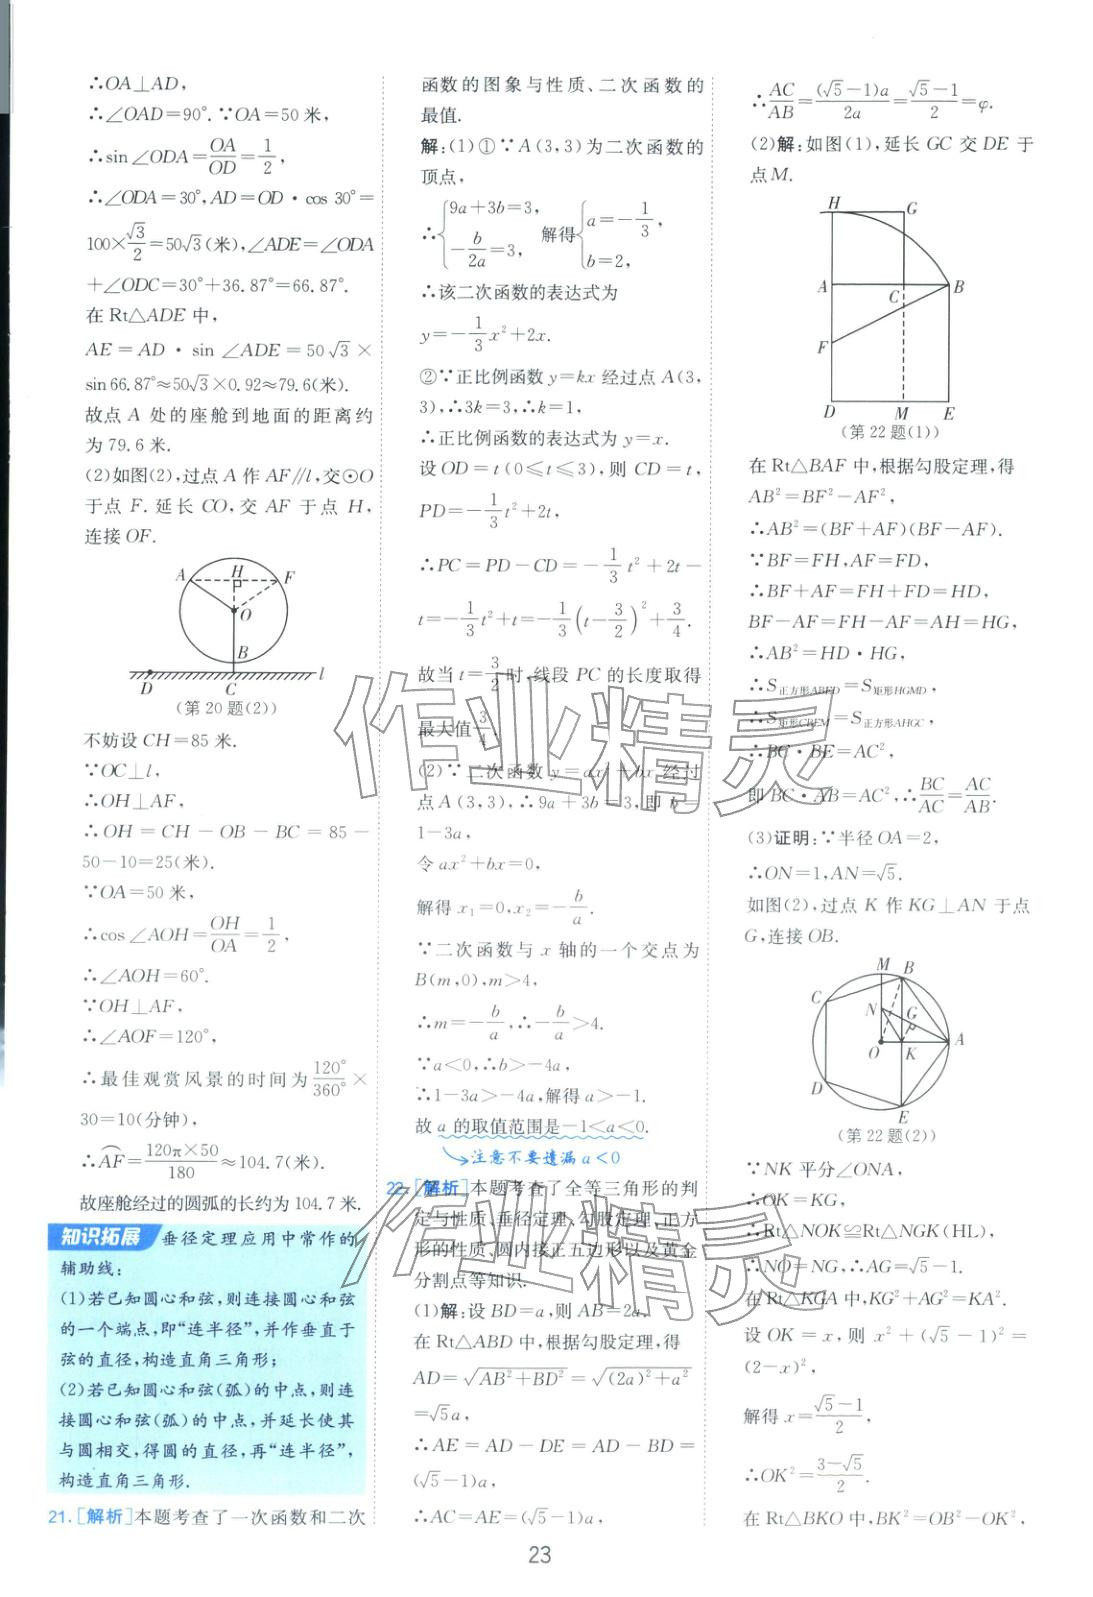 ∴OA⊥AD,
∴∠OAD=90°.∵OA=50米,
∴sin∠ODA=OA/OD=1/2,
∴∠ODA=30°,AD=OD·cos 30°=
100×√3/2=50√3(米),∠ADE=∠ODA
+∠ODC=30°+36.87°=66.87°.
在 Rt△ADE 中,
AE=AD·sin∠ADE=50√3×
sin 66.87°≈50√3×0.92≈79.6(米).
故点 A 处的座舱到地面的距离约
为 79.6 米.
(2)如图(2),过点 A 作 AF∥l,交⊙O
于点 F.延长 CO,交 AF 于点 H,
连接 OF.
A H F
O
B
D C l
(第 20 题(2))
不妨设 CH=85 米.
∵OC⊥l,
∴OH⊥AF,
∴OH=CH-OB-BC=85-
50-10=25(米).
∵OA=50 米,
∴cos∠AOH=OH/OA=1/2,
∴∠AOH=60°.
∵OH⊥AF,
∴∠AOF=120°,
∴最佳观赏风景的时间为120°/360°×
30=10(分钟),
∴⌒AF=120π×50/180≈104.7(米).
故座舱经过的圆弧的长约为 104.7 米.
知识拓展 垂径定理应用中常作的
辅助线:
(1)若已知圆心和弦,则连接圆心和弦
的一个端点,即“连半径”,并作垂直于
弦的直径,构造直角三角形;
(2)若已知圆心和弦(弧)的中点,则连
接圆心和弦(弧)的中点,并延长使其
与圆相交,得圆的直径,再“连半径”,
构造直角三角形.
21.[解析]本题考查了一次函数和二次
函数的图象与性质、二次函数的
最值.
解:(1)①∵A(3,3)为二次函数的
顶点,
∴{9a+3b=3, -b/2a=3, 解得{a=-1/3, b=2,
∴该二次函数的表达式为
y=-1/3x²+2x.
②∵正比例函数 y=kx 经过点 A(3,
3),∴3k=3,∴k=1,
∴正比例函数的表达式为 y=x.
设 OD=t(0≤t≤3),则 CD=t,
PD=-1/3t²+2t,
∴PC=PD-CD=-1/3t²+2t-
t=-1/3t²+t=-1/3(t-3/2)²+3/4.
故当 t=3/2时,线段 PC 的长度取得
最大值3/4.
(2)∵二次函数 y=ax²+bx 经过
点 A(3,3),∴9a+3b=3,即 b=
1-3a,
令 ax²+bx=0,
解得 x₁=0,x₂=-b/a.
∵二次函数与 x 轴的一个交点为
B(m,0),m>4,
∴m=-b/a,∴-b/a>4.
∵a<0,∴b>-4a,
∴1-3a>-4a,解得 a>-1.
故 a 的取值范围是-1<a<0.
注意不要遗漏 a<0
22.[解析]本题考查了全等三角形的判
定与性质、垂径定理、勾股定理、正方
形的性质、圆内接正五边形以及黄金
分割点等知识.
(1)解:设 BD=a,则 AB=2a.
在 Rt△ABD 中,根据勾股定理,得
AD=√(AB²+BD²)=√((2a)²+a²)
=√5a,
∴AE=AD-DE=AD-BD=
(√5-1)a,
∴AC=AE=(√5-1)a,
∴AC/AB=(√5-1)a/2a=(√5-1)/2=φ.
(2)解:如图(1),延长 GC 交 DE 于
点 M.
H G
A C B
F
D M E
(第 22 题(1))
在 Rt△BAF 中,根据勾股定理,得
AB²=BF²-AF²,
∴AB²=(BF+AF)(BF-AF).
∵BF=FH,AF=FD,
∴BF+AF=FH+FD=HD,
BF-AF=FH-AF=AH=HG,
∴AB²=HD·HG,
∴S正方形ABED=S矩形HGMD,
∴S矩形CBEM=S正方形AHGC,
∴BC·BE=AC²,
即 BC·AB=AC²,∴BC/AC=AC/AB.
(3)证明:∵半径 OA=2,
∴ON=1,AN=√5.
如图(2),过点 K 作 KG⊥AN 于点
G,连接 OB.
M B
C
N G
O K A
D
E
(第 22 题(2))
∵NK 平分∠ONA,
∴OK=KG,
∴Rt△NOK≌Rt△NGK(HL),
∴NO=NG,∴AG=√5-1.
在 Rt△KGA 中,KG²+AG²=KA².
设 OK=x,则 x²+(√5-1)²=
(2-x)²,
解得 x=(√5-1)/2,
∴OK²=(3-√5)/2.
在 Rt△BKO 中,BK²=OB²-OK²,
作业精灵
作业精灵
23